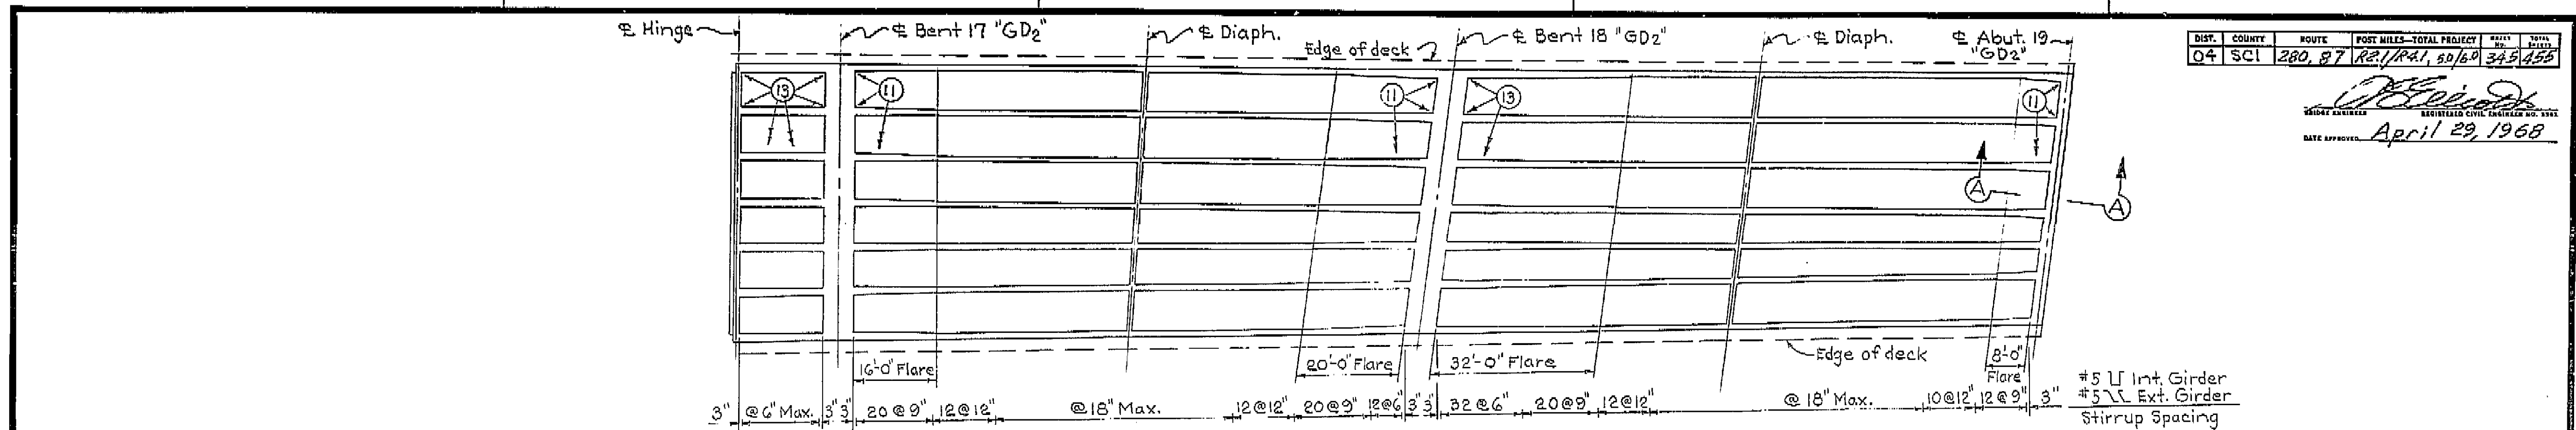 ℄ Hinge
℄ Bent 17 "GD2"
℄ Diaph.
Edge of deck
℄ Bent 18 "GD2"
℄ Diaph.
℄ Abut. 19
"GD2"
DIST. COUNTY ROUTE POST MILES—TOTAL PROJECT SHEET No. TOTAL SHEETS
04 SCl 280, 87 R2.1/R4.1, 5.0/6.0 345 455
BRIDGE ENGINEER REGISTERED CIVIL ENGINEER NO.
DATE APPROVED April 29, 1968
13
11
11
13
11
A
A
16'-0" Flare
20'-0" Flare
32'-0" Flare
Edge of deck
8'-0"
Flare
3" @ 6" Max. 3" 3" 20 @ 9" 12 @ 12" @ 18" Max. 12 @ 12" 20 @ 9" 12 @ 6" 3" 3" 32 @ 6" 20 @ 9" 12 @ 12" @ 18" Max. 10 @ 12" 12 @ 9" 3"
#5 Int. Girder
#5 Ext. Girder
Stirrup Spacing